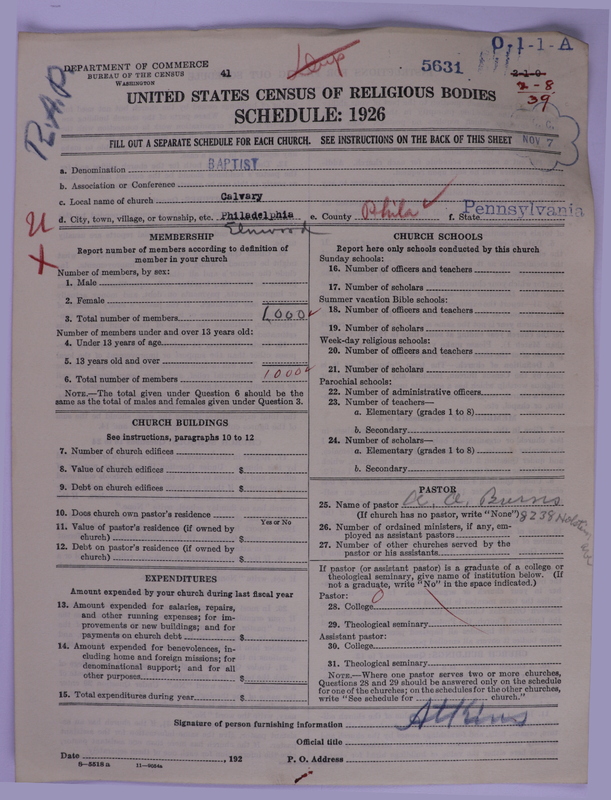 DEPARTMENT OF COMMERCE
BUREAU OF THE CENSUS
WASHINGTON
41
5631
0-1-1-A
2-1-0
2-8
39
NOV 7
R.A.P
UNITED STATES CENSUS OF RELIGIOUS BODIES
SCHEDULE: 1926
FILL OUT A SEPARATE SCHEDULE FOR EACH CHURCH. SEE INSTRUCTIONS ON THE BACK OF THIS SHEET
a. Denomination BAPTIST
b. Association or Conference
c. Local name of church Calvary
d. City, town, village, or township, etc. Philadelphia e. County Phila f. State Pennsylvania
Elmwood
U
X
MEMBERSHIP
Report number of members according to definition of
member in your church
Number of members, by sex:
1. Male
2. Female
3. Total number of members 1,000
Number of members under and over 13 years old:
4. Under 13 years of age
5. 13 years old and over
6. Total number of members 1000
NOTE.—The total given under Question 6 should be
same as the total of males and females given under Question 3.
CHURCH BUILDINGS
See instructions, paragraphs 10 to 12
7. Number of church edifices
8. Value of church edifices $
9. Debt on church edifices $
10. Does church own pastor's residence
Yes or No
11. Value of pastor's residence (if owned by
church) $
12. Debt on pastor's residence (if owned by
church) $
EXPENDITURES
Amount expended by your church during last fiscal year
13. Amount expended for salaries, repairs,
and other running expenses; for im-
provements or new buildings; and for
payments on church debt $
14. Amount expended for benevolences, in-
cluding home and foreign missions; for
denominational support; and for all
other purposes $
15. Total expenditures during year $
CHURCH SCHOOLS
Report here only schools conducted by this church
Sunday schools:
16. Number of officers and teachers
17. Number of scholars
Summer vacation Bible schools:
18. Number of officers and teachers
19. Number of scholars
Week-day religious schools:
20. Number of officers and teachers
21. Number of scholars
Parochial schools:
22. Number of administrative officers
23. Number of teachers—
a. Elementary (grades 1 to 8)
b. Secondary
24. Number of scholars—
a. Elementary (grades 1 to 8)
b. Secondary
PASTOR
25. Name of pastor A. A. Burns
(If church has no pastor, write "None") 8238
26. Number of ordained ministers, if any, em-
ployed as assistant pastors
27. Number of other churches served by the
pastor or his assistants
If pastor (or assistant pastor) is a graduate of a college or
theological seminary, give name of institution below. (If
not a graduate, write "No" in the space indicated.)
Pastor:
28. College
29. Theological seminary
Assistant pastor:
30. College
31. Theological seminary
NOTE.—Where one pastor serves two or more churches,
Questions 28 and 29 should be answered only on the schedule
for one of the churches; on the schedules for the other churches,
write "See schedule for church."
Signature of person furnishing information Atkins
Official title
Date , 192 P. O. Address
8—5518 a 11—9084a